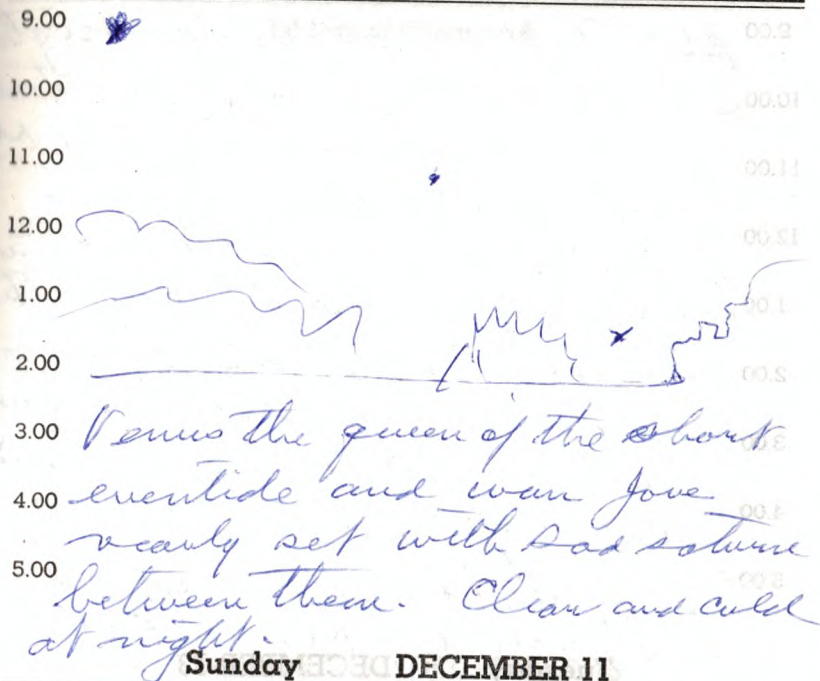 9.00
10.00
11.00
12.00
1.00
2.00
3.00 Venus the queen of the short
4.00 eventide and wan Jove
nearly set with sad saturn
5.00
between them. Clear and cold
at night.
Sunday DECEMBER 11